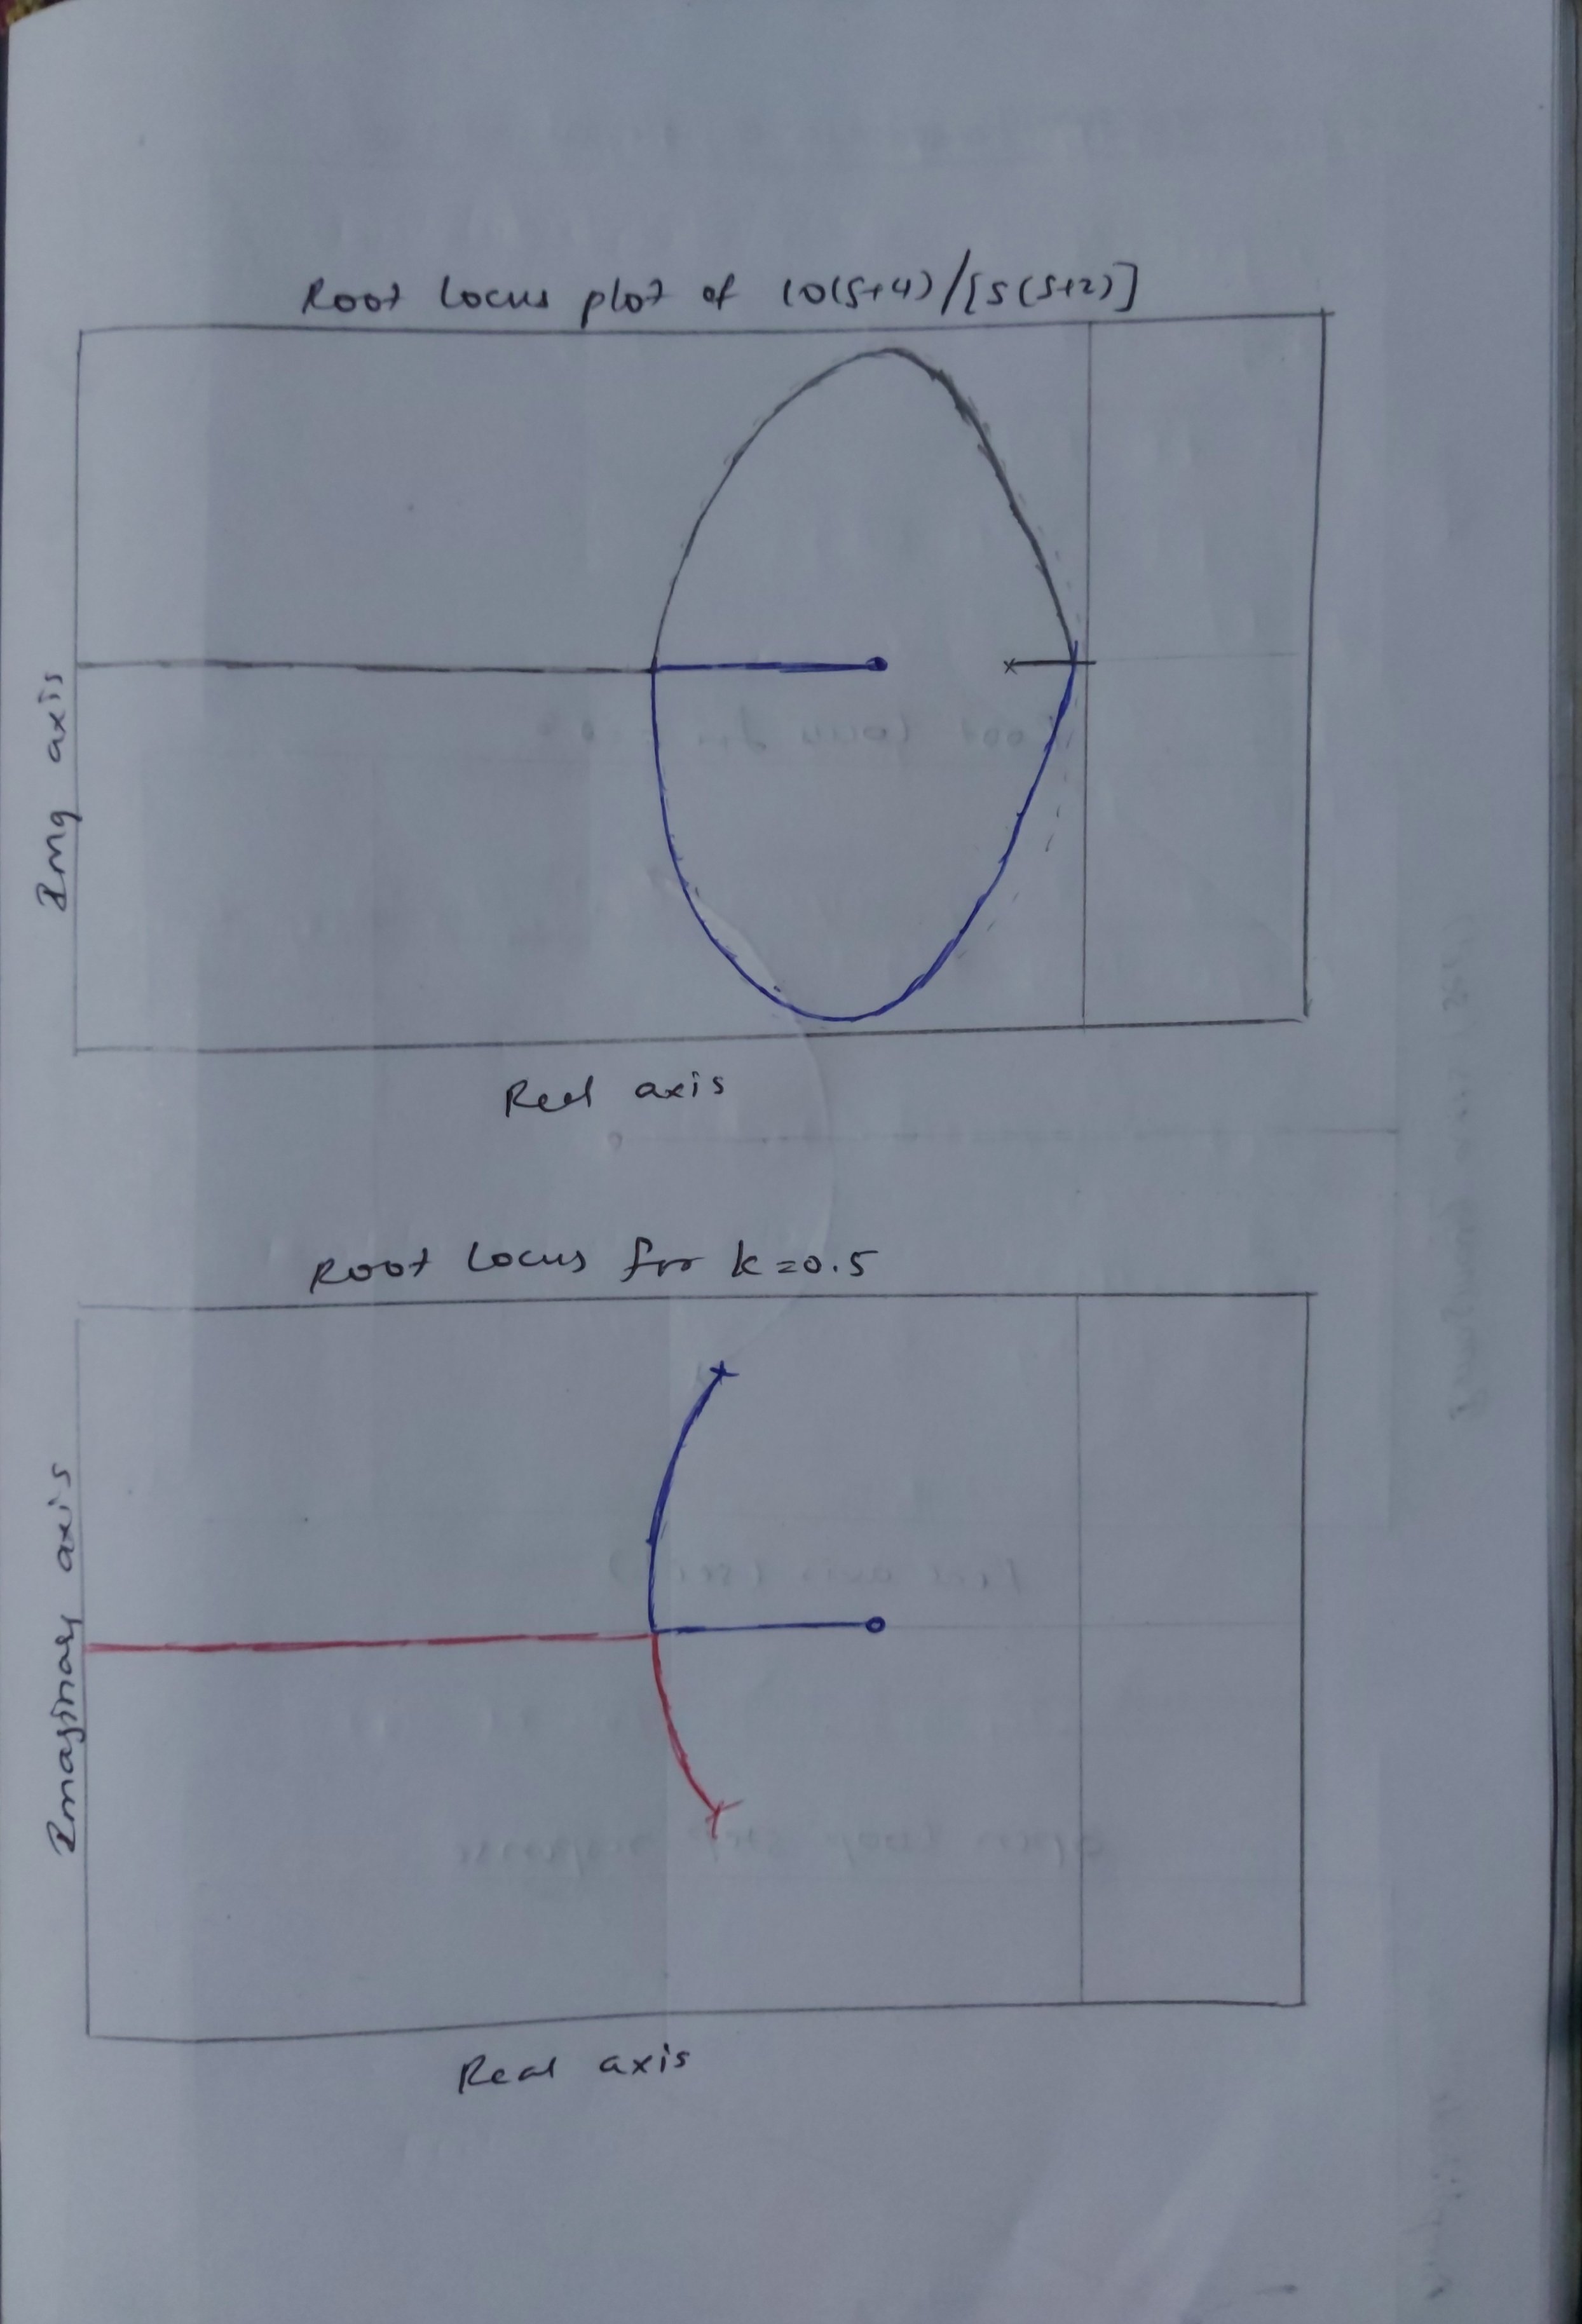 Root Locus plot of 10(s+4)/[s(s+2)]
Img axis
Real axis
Root Locus for k=0.5
Imaginary axis
Real axis